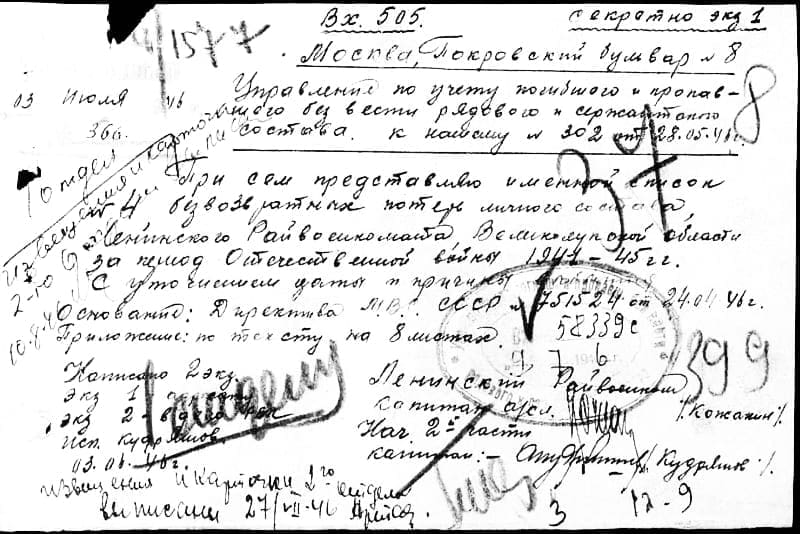 Вх. 505.
секретно экз 1
1577
Москва, Покровский бульвар № 8
03 Июля 46
Управление по учету погибшего и пропав-
шего без вести рядового и сержантского
состава. к нашему № 302 от 28.05.46г.
366.
I отдел
37
8
При сем представляю именной список
№ 4 безвозвратных потерь личного состава
Ленинского Райвоенкомата, Великолукской области
за период Отечественной войны 1941-45 гг.
С уточнением даты и причины
Основание: Директива М.В. СССР № 751524 от 24.04.46г.
Приложение: по тексту на 8 листах.
58339с
9 7 6
399
извещения и карточки
2-го отдела
10.8.46
Написано 2 экз.
экз 1
экз 2 - в дело
Исп. Кудряшов
03.06.46г.
I отделу
Ленинский Райвоенком
капитан а/сл. /Кожанин/.
Нач. 2й части
капитан: - /Кудряшов/.
извещения и карточки 2го отдела
выписаны 27/VII-46
3 12-9